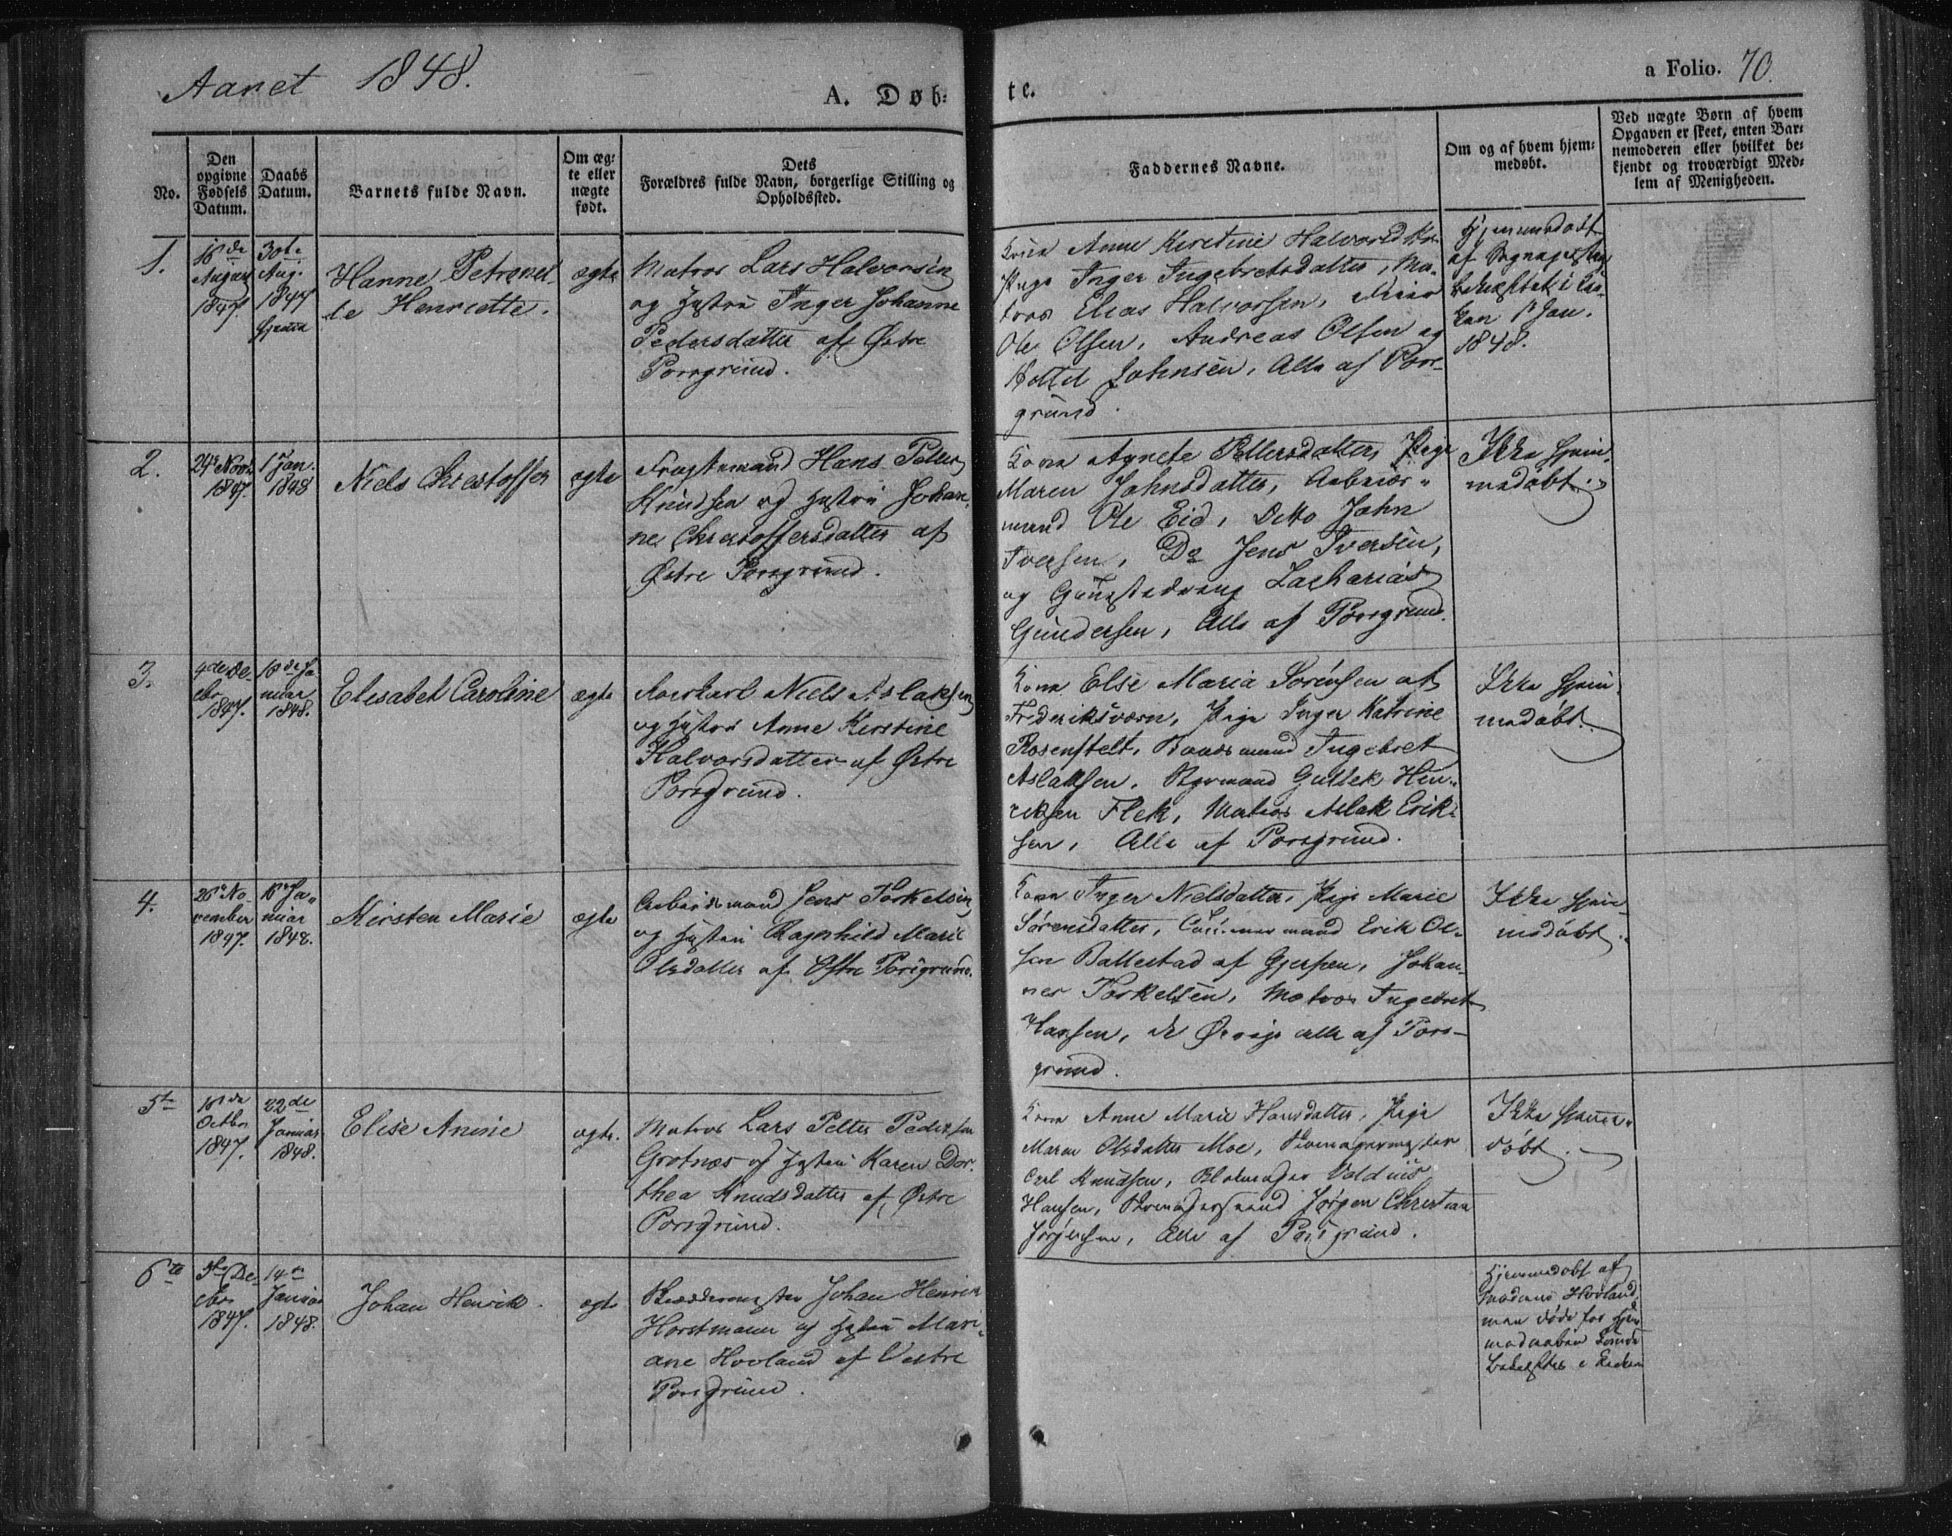 Aaret 1848.
A. Døb-
te.
a Folio. 70.
No.
Den
opgivne
Fødsels
Datum.
Daabs
Datum.
Barnets fulde Navn.
Om æg-
te eller
uægte
født.
Dets
Forældres fulde Navn, borgerlige Stilling og
Opholdssted.
Faddernes Navne.
Om og af hvem hjem-
medøbt.
Ved uægte Børn af hvem
Opgaven er skeet, enten Bar-
nemoderen eller hvilket be-
kjendt og troværdigt Med-
lem af Menigheden.
1.
16de
August
1847.
30te
Aug.
1847
hjemme
Hanne Petronel-
le Henriette.
ægte
Matros Lars Halvorsen
og Hustru Inger Johanne
Pedersdatter af Østre
Porsgrund.
Kone Anne Kirstine Halvorsdtr.
Pige Inger Ingebretsdatter, Ma-
tros Elias Halvorsen,
Ole Olsen, Andreas Olsen og
Johnsen, Alle af Pors-
grund.
Hjemmedøbt
af Sognepresten
bekræftet i Kir-
ken 1 Jan.
1848.
2.
24de Novbr.
1847.
1 Jan.
1848
Niels Christoffer
ægte
Fragtemand Hans Petter
Knudsen og Hustru Johan-
ne Christoffersdatter af
Østre Porsgrund.
Kone Agnete Pettersdatter, Pige
Maren Johnsdatter, Arbeids-
mand Ole Eid, Ditto John
Iversen, Do Jens Iversen,
og Zacharias
Gundersen, Alle af Porsgrund.
Ikke hjem-
medøbt.
3.
4de De-
cbr.
1847.
16de Ja-
nuar
1848.
Elisabet Caroline
ægte
Niels Aslaksen
og Hustru Anne Kirstine
Halvorsdatter af Østre
Porsgrund.
Kone Else Maria Sørensen af
Frederiksværn, Pige Inger Katrine
Rosenstelt, Baadsmand Ingebret
Aslaksen, Styrmand Gullek Hen-
riksen Flek, Matros Aslak Erik-
sen, Alle af Porsgrund.
Ikke hjem-
medøbt.
4.
26de No-
vember
1847.
16de Ja-
nuar
1848.
Kirsten Marie
ægte
Arbeidsmand Jens Torkelsen
og Hustru Ragnhild Marie
Olsdatter af Østre Porsgrund.
Kone Inger Nielsdatter, Pige Marie
Sørensdatter, Tømmermand Erik Ol-
sen Ballestad af Gjerpen, Johan-
nes Torkelsen, Matros Ingebret
Hansen, de Øvrige alle af Pors-
grund.
Ikke hjem-
medøbt.
5te
16de
Octbr.
1847.
22de
Januar
1848.
Elise Anine
ægte.
Matros Lars Petter Pedersen
Grotnæs og Hustru Karen Dor-
thea Knudsdatter af Østre
Porsgrund.
Kone Anne Marie Hansdatter, Pige
Maren Olsdatter Moe, Skomagermester
Carl Knudsen,
Hansen, Jørgen Christian
Jørgensen, Alle af Porsgrund.
Ikke hjemme-
døbt.
6te
5te De-
cbr.
1847.
14de
Januar
1848.
Johan Henrik.
ægte
Skræddermester Johan Henrik
Horstmann og Hustru Mari-
ane Hovland af Vestre
Porsgrund.
Hjemmedøbt af
Hovland,
men døde før Hjem-
medaaben kunde
bekræftes i Kirken